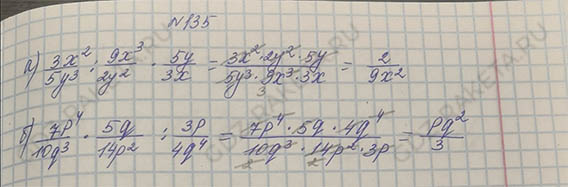 №135
а) 3x²/5y³ : 9x³/2y² · 5y/3x = 3x² · 2y² · 5y / 5y³ · 9x³ · 3x = 2/9x²
3
б) 7p⁴/10q³ · 5q/14p² : 3p/4q⁴ = 7p⁴ · 5q · 4q⁴ / 10q³ · 14p² · 3p = pq²/3
2 2
GDZ-RAKETA.RU